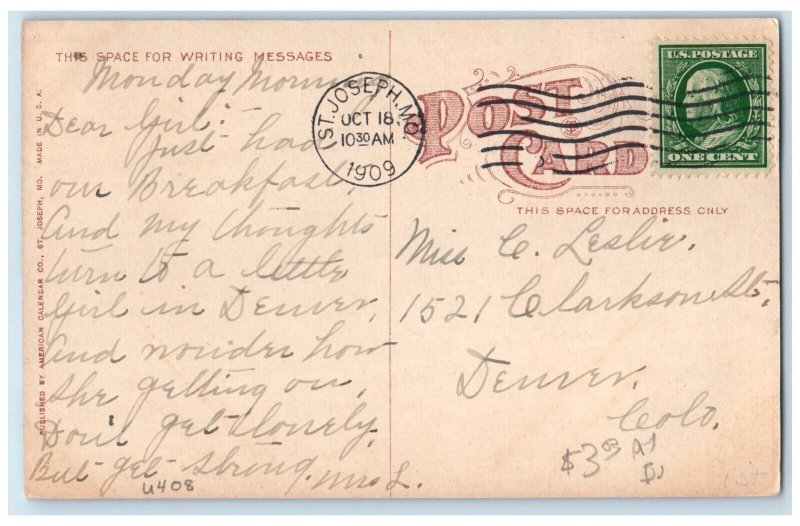 THIS SPACE FOR WRITING MESSAGES
Monday Morning
Dear Girl:
Just had
our Breakfast
And my thoughts
turn to a little
Girl in Denver,
And wonder how
she getting on,
Don't get lonely.
But get strong. Mrs L.
U408
PUBLISHED BY AMERICAN CALENDAR CO., ST. JOSEPH, MO. MADE IN U.S.A.
ST. JOSEPH, MO.
OCT 18
10 30 AM
1909
POST
CARD
U.S. POSTAGE
ONE CENT
THIS SPACE FOR ADDRESS ONLY
Miss C. Leslie.
1521 Clarkson St.,
Denver.
Colo.